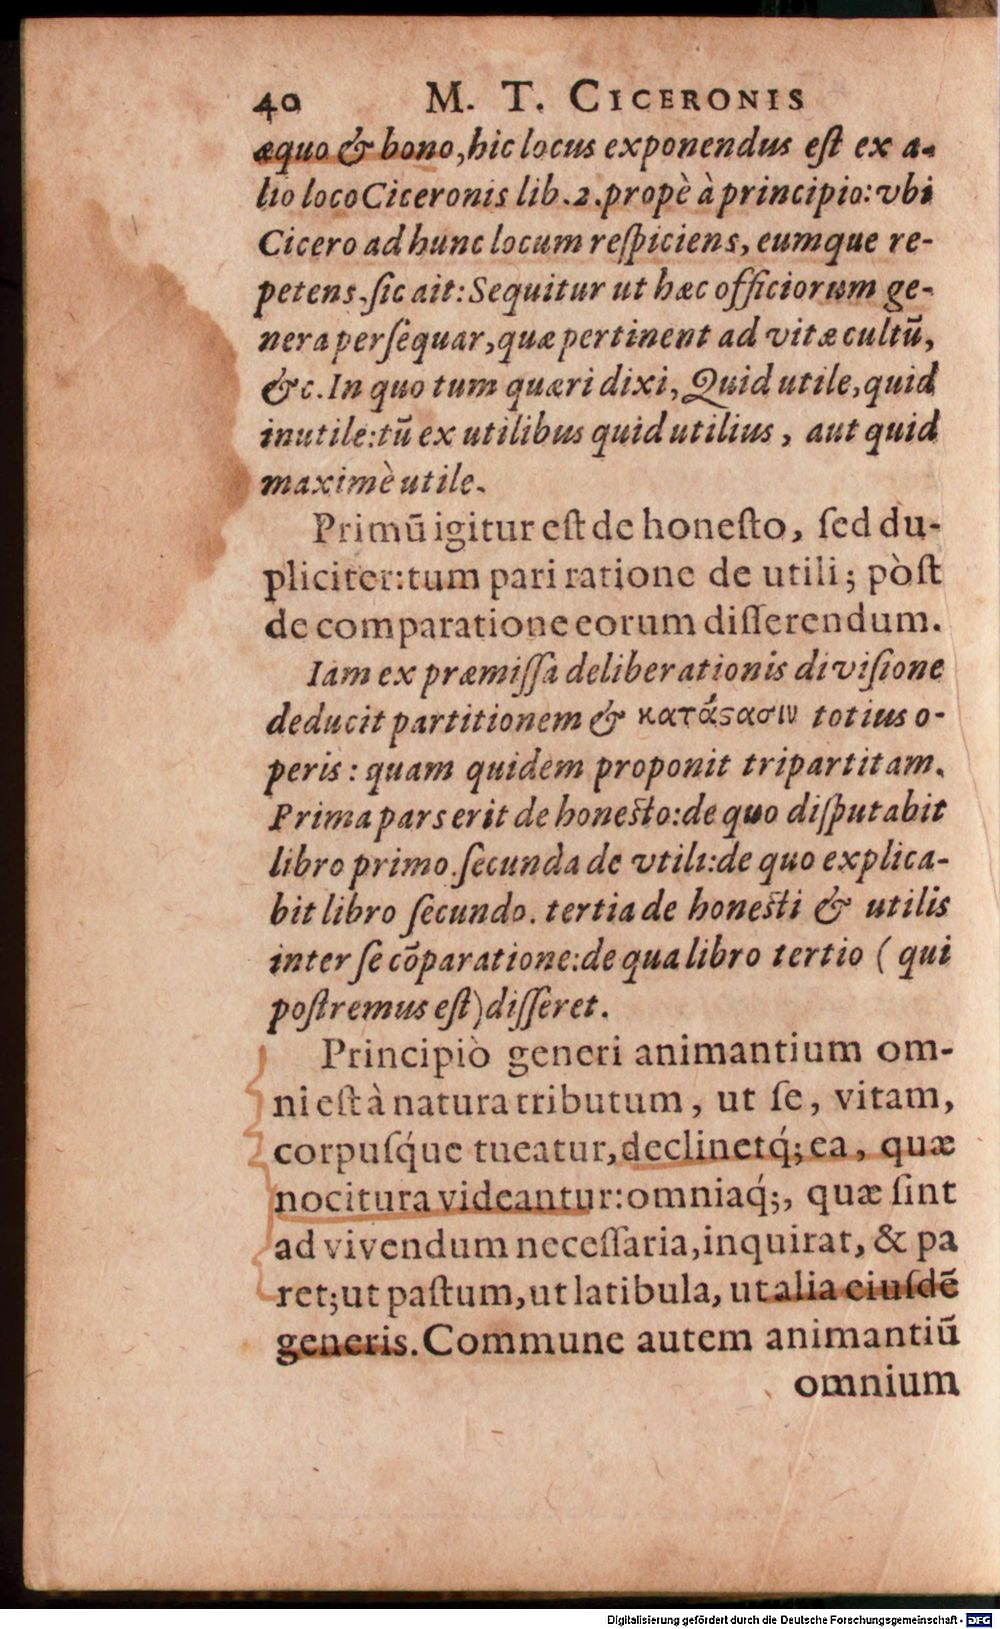 40 M. T. CICERONIS
æquo & bono, hic locus exponendus eſt ex a-
lio loco Ciceronis lib. 2. propè à principio: vbi
Cicero ad hunc locum reſpiciens, eumque re-
petens, ſic ait: Sequitur ut hæc officiorum ge-
nera perſequar, quæ pertinent ad vitæ cultū,
&c. In quo tum quæri dixi, Quid utile, quid
inutile: tū ex utilibus quid utilius, aut quid
maximè utile.
Primū igitur eſt de honeſto, ſed du-
pliciter: tum pari ratione de utili; pòſt
de comparatione eorum diſſerendum.
Iam ex præmiſſa deliberationis diviſione
deducit partitionem & κατάϛασιν totius o-
peris: quam quidem proponit tripartitam.
Prima pars erit de honesto: de quo diſputabit
libro primo. ſecunda de vtili: de quo explica-
bit libro ſecundo. tertia de honesti & utilis
inter ſe cōparatione: de qua libro tertio ( qui
poſtremus eſt) diſſeret.
Principiò generi animantium om-
ni eſt à natura tributum, ut ſe, vitam,
corpuſq́ue tueatur, declinetq́; ea, quæ
nocitura videantur: omniaq́;, quæ ſint
ad vivendum neceſſaria, inquirat, & pa
ret; ut paſtum, ut latibula, ut alia eiuſdē
generis. Commune autem animantiū
omnium
Digitalisierung gefördert durch die Deutsche Forschungsgemeinschaft - DFG